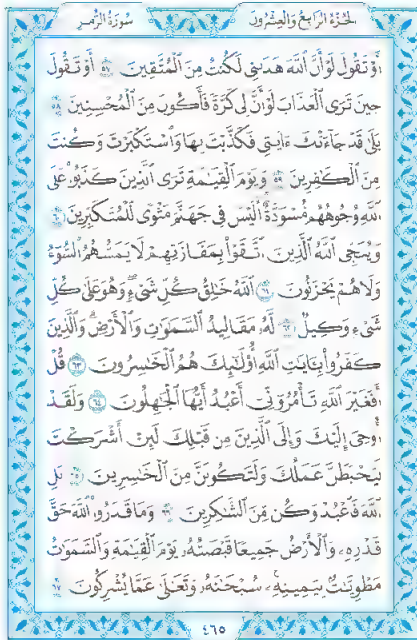 الجزء الرابع والعشرون
سورة الزمر
أَوْ تَقُولَ لَوْ أَنَّ ٱللَّهَ هَدَىٰنِى لَكُنتُ مِنَ ٱلْمُتَّقِينَ ٥٧ أَوْ تَقُولَ
حِينَ تَرَى ٱلْعَذَابَ لَوْ أَنَّ لِى كَرَّةً فَأَكُونَ مِنَ ٱلْمُحْسِنِينَ ٥٨
بَلَىٰ قَدْ جَآءَتْكَ ءَايَٰتِى فَكَذَّبْتَ بِهَا وَٱسْتَكْبَرْتَ وَكُنتَ
مِنَ ٱلْكَٰفِرِينَ ٥٩ وَيَوْمَ ٱلْقِيَٰمَةِ تَرَى ٱلَّذِينَ كَذَبُوا۟ عَلَى
ٱللَّهِ وُجُوهُهُم مُّسْوَدَّةٌ أَلَيْسَ فِى جَهَنَّمَ مَثْوًى لِّلْمُتَكَبِّرِينَ ٦٠
وَيُنَجِّى ٱللَّهُ ٱلَّذِينَ ٱتَّقَوْا۟ بِمَفَازَتِهِمْ لَا يَمَسُّهُمُ ٱلسُّوٓءُ
وَلَا هُمْ يَحْزَنُونَ ٦١ ٱللَّهُ خَٰلِقُ كُلِّ شَىْءٍ وَهُوَ عَلَىٰ كُلِّ
شَىْءٍ وَكِيلٌ ٦٢ لَّهُۥ مَقَالِيدُ ٱلسَّمَٰوَٰتِ وَٱلْأَرْضِ وَٱلَّذِينَ
كَفَرُوا۟ بِـَٔايَٰتِ ٱللَّهِ أُو۟لَٰٓئِكَ هُمُ ٱلْخَٰسِرُونَ ٦٣ قُلْ
أَفَغَيْرَ ٱللَّهِ تَأْمُرُوٓنِّىٓ أَعْبُدُ أَيُّهَا ٱلْجَٰهِلُونَ ٦٤ وَلَقَدْ
أُوحِىَ إِلَيْكَ وَإِلَى ٱلَّذِينَ مِن قَبْلِكَ لَئِنْ أَشْرَكْتَ
لَيَحْبَطَنَّ عَمَلُكَ وَلَتَكُونَنَّ مِنَ ٱلْخَٰسِرِينَ ٦٥ بَلِ
ٱللَّهَ فَٱعْبُدْ وَكُن مِّنَ ٱلشَّٰكِرِينَ ٦٦ وَمَا قَدَرُوا۟ ٱللَّهَ حَقَّ
قَدْرِهِۦ وَٱلْأَرْضُ جَمِيعًا قَبْضَتُهُۥ يَوْمَ ٱلْقِيَٰمَةِ وَٱلسَّمَٰوَٰتُ
مَطْوِيَّٰتٌۢ بِيَمِينِهِۦ سُبْحَٰنَهُۥ وَتَعَٰلَىٰ عَمَّا يُشْرِكُونَ ٦٧
٤٦٥